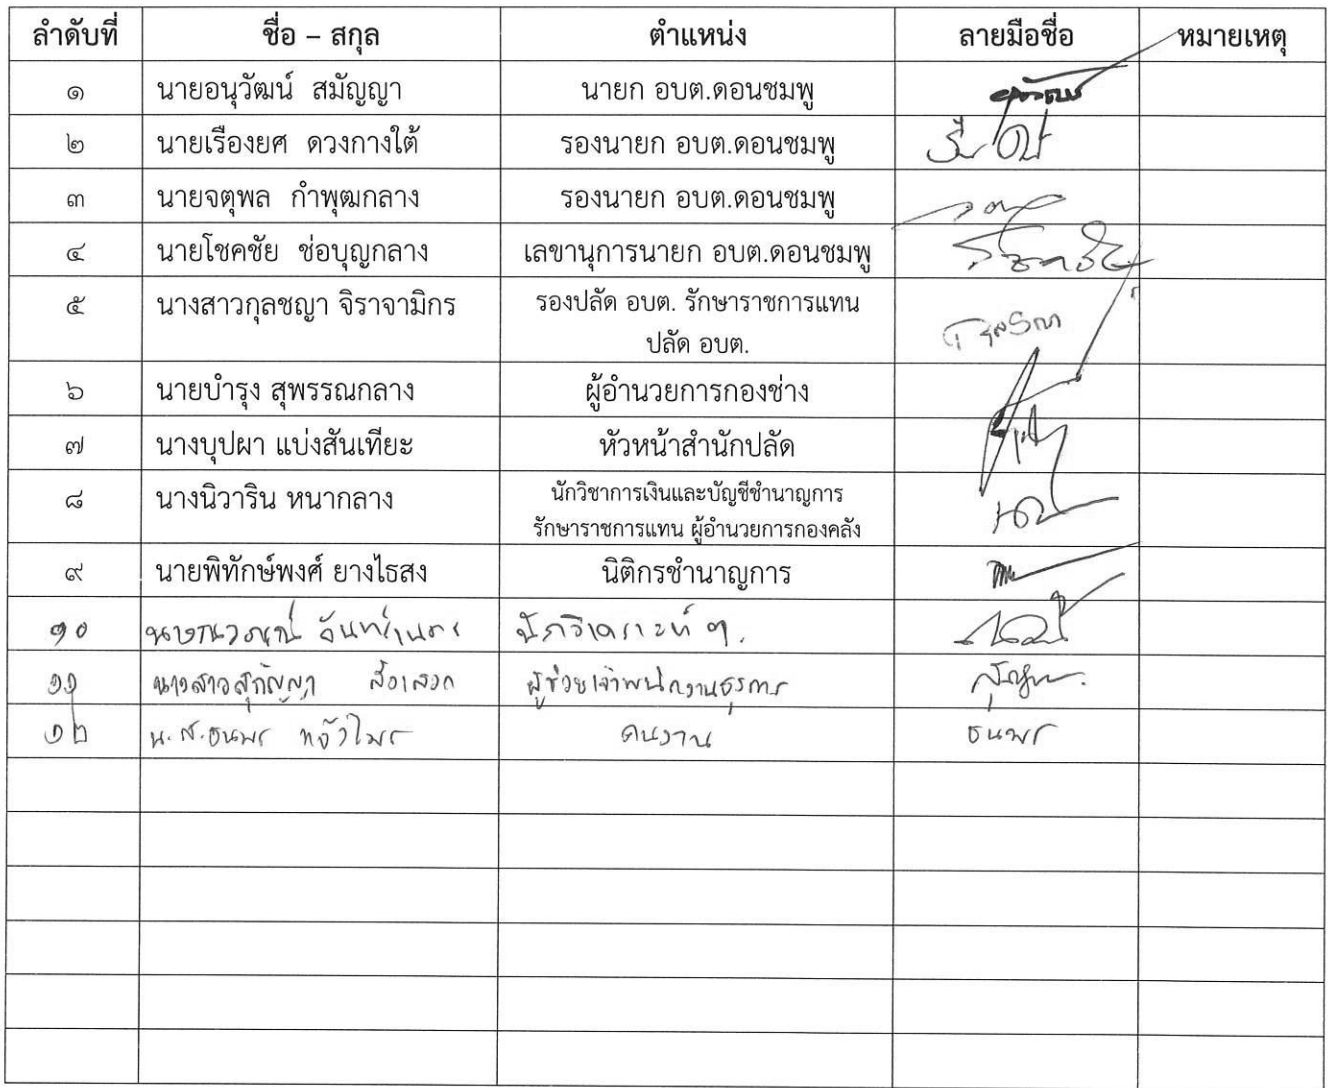 ลำดับที่ ชื่อ – สกุล ตำแหน่ง ลายมือชื่อ หมายเหตุ
๑ นายอนุวัฒน์ สมัญญา นายก อบต.ดอนชมพู
๒ นายเรืองยศ ดวงกางใต้ รองนายก อบต.ดอนชมพู
๓ นายจตุพล กำพุฒกลาง รองนายก อบต.ดอนชมพู
๔ นายโชคชัย ช่อบุญกลาง เลขานุการนายก อบต.ดอนชมพู
๕ นางสาวกุลชญา จิราจามิกร รองปลัด อบต. รักษาราชการแทน
ปลัด อบต.
๖ นายบำรุง สุพรรณกลาง ผู้อำนวยการกองช่าง
๗ นางบุปผา แบ่งสันเทียะ หัวหน้าสำนักปลัด
๘ นางนิวาริน หนากลาง นักวิชาการเงินและบัญชีชำนาญการ
รักษาราชการแทน ผู้อำนวยการกองคลัง
๙ นายพิทักษ์พงศ์ ยางไธสง นิติกรชำนาญการ
๑๐ นักวิเคราะห์ ฯ.
๑๑ นางสาวสุกัญญา ผู้ช่วยเจ้าพนักงานธุรการ
๑๒ น.ส.ธนพร คนงาน ธนพร